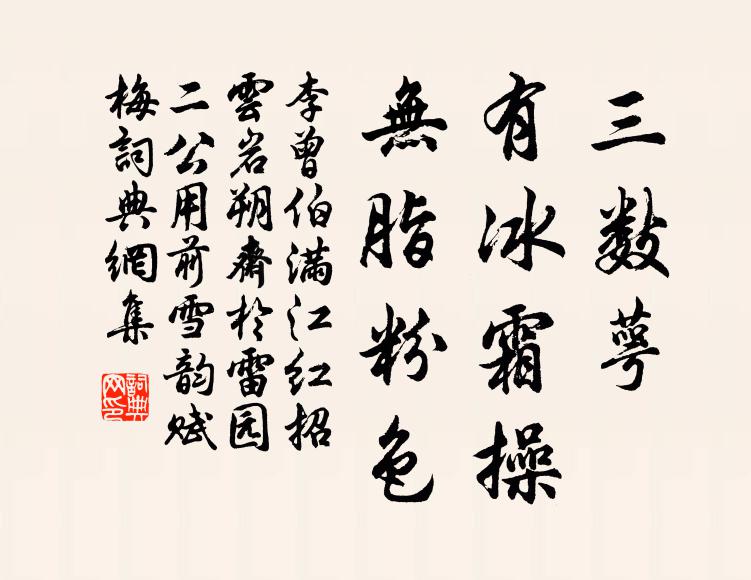 三数萼
有冰霜操
無脂粉色
李曾伯满江红招
雲岩朔齋於雷园
二公用前雪韵赋
梅詞典網集
詞典網印